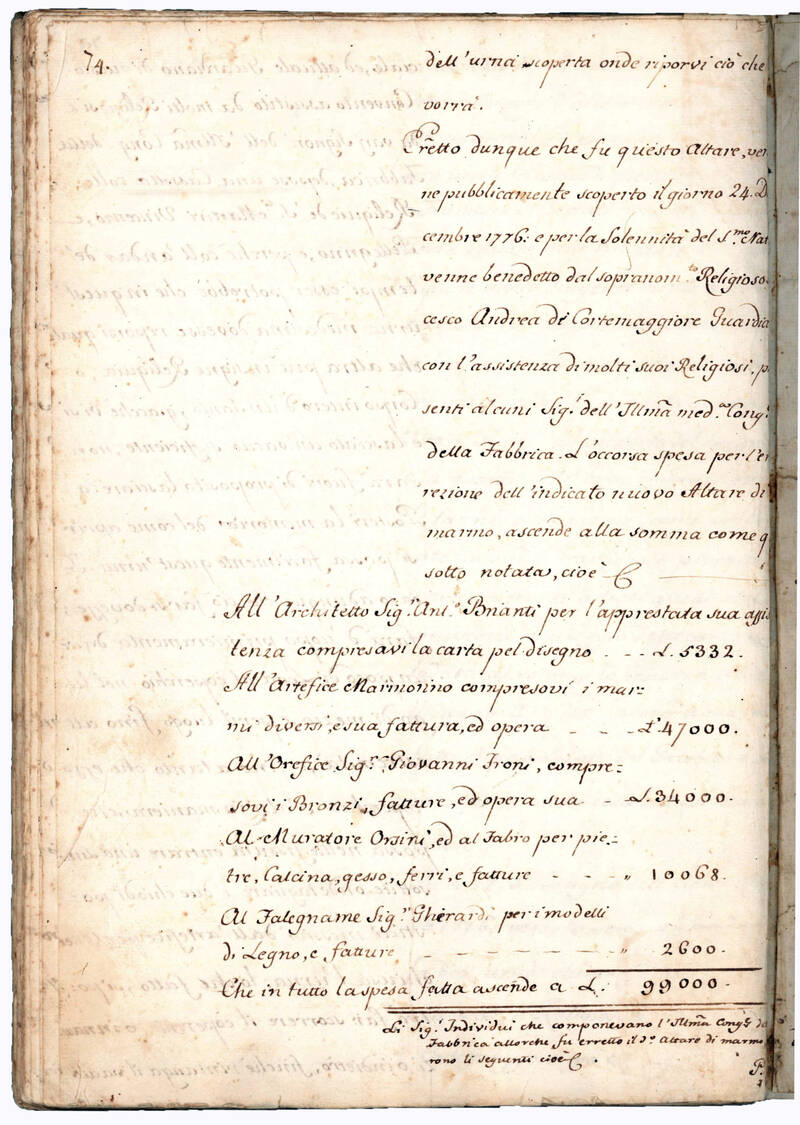 74.
dell'urna scoperta onde riporvi ciò che
vorrà.
Eretto dunque che fu questo Altare, ven
ne pubblicamente scoperto il giorno 24. D
cembre 1776: e per la Solennità del S.mo Nat
venne benedetto dal sopranom.to Religioso
cesco Andrea di Cortemaggiore Guardia
con l'assistenza di molti suoi Religiosi, p
senti alcuni Sig.i dell'Illma med.a Cong.e
della Fabbrica. L'occorsa spesa per l'e
rezione dell'indicato nuovo Altare di
marmo, ascende alla somma come q
sotto notata, cioè
All'Architetto Sig.r Ant.o Bnanti per l'apprestata sua assis
tenza compresavi la carta pel disegno - - - £. 5332.
All'Artefice Marmorino compresovi i mar=
mi diversi, e sua fattura, ed opera - - - £. 47000.
All'Orefice Sig.r Giovanni Froni, compre=
sovi i Bronzi, fatture, ed opera sua - £. 34000.
Al Muratore Orsini, ed al Fabro per pie=
tre, Calcina, gesso, ferri, e fatture - - - " 10068.
Al Falegname Sig.r Gherardi per i modelli
di Legno, e fatture - - - - - - " 2600.
Che in tutto la spesa fatta ascende a £. 99000.
Li Sig.i Individui che componevano l'Illma Cong.e da
Fabbrica allorche fu erretto il d.o Altare di marmo
rono li seguenti cioè
P.